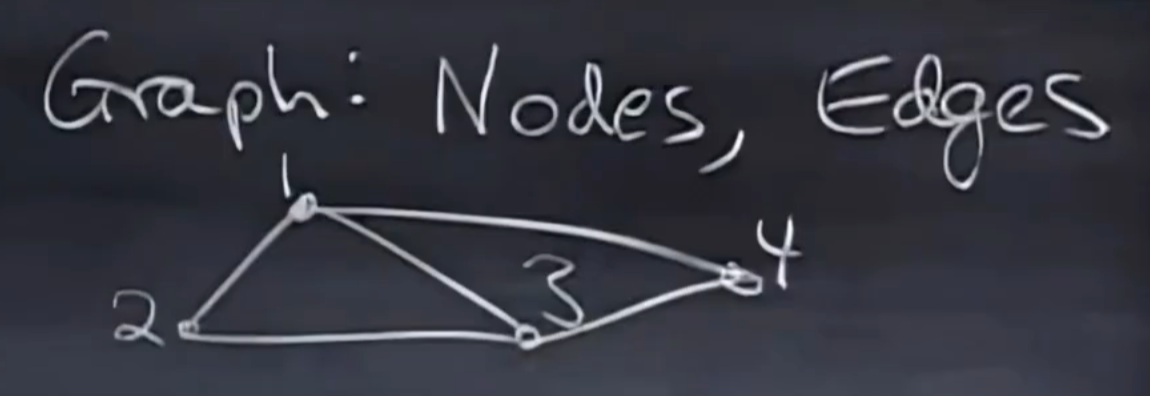 Graph: Nodes, Edges
1
4
3
2